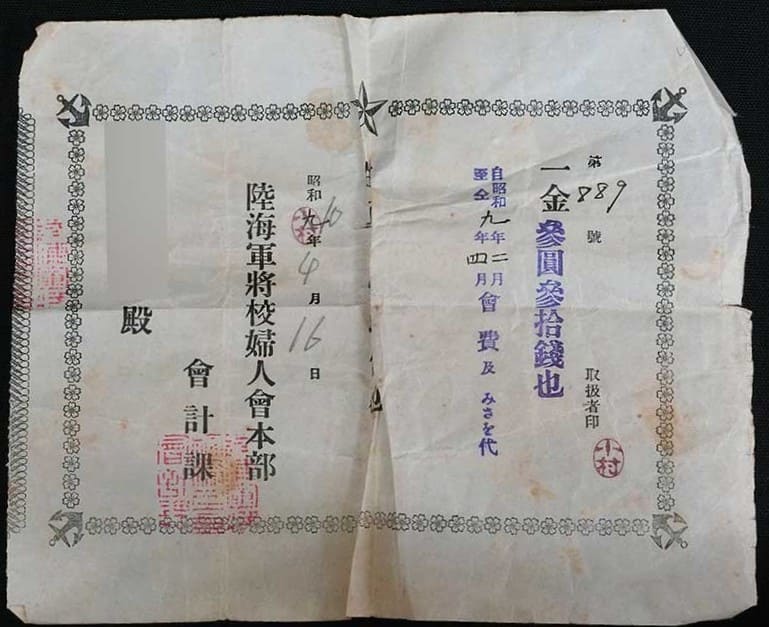 第889號
取扱者印 小村
一金參圓參拾錢也
自昭和九年二月
至仝 年四月
會費及みさを代
昭和九10年4月16日
陸海軍將校婦人會本部
會計課
殿